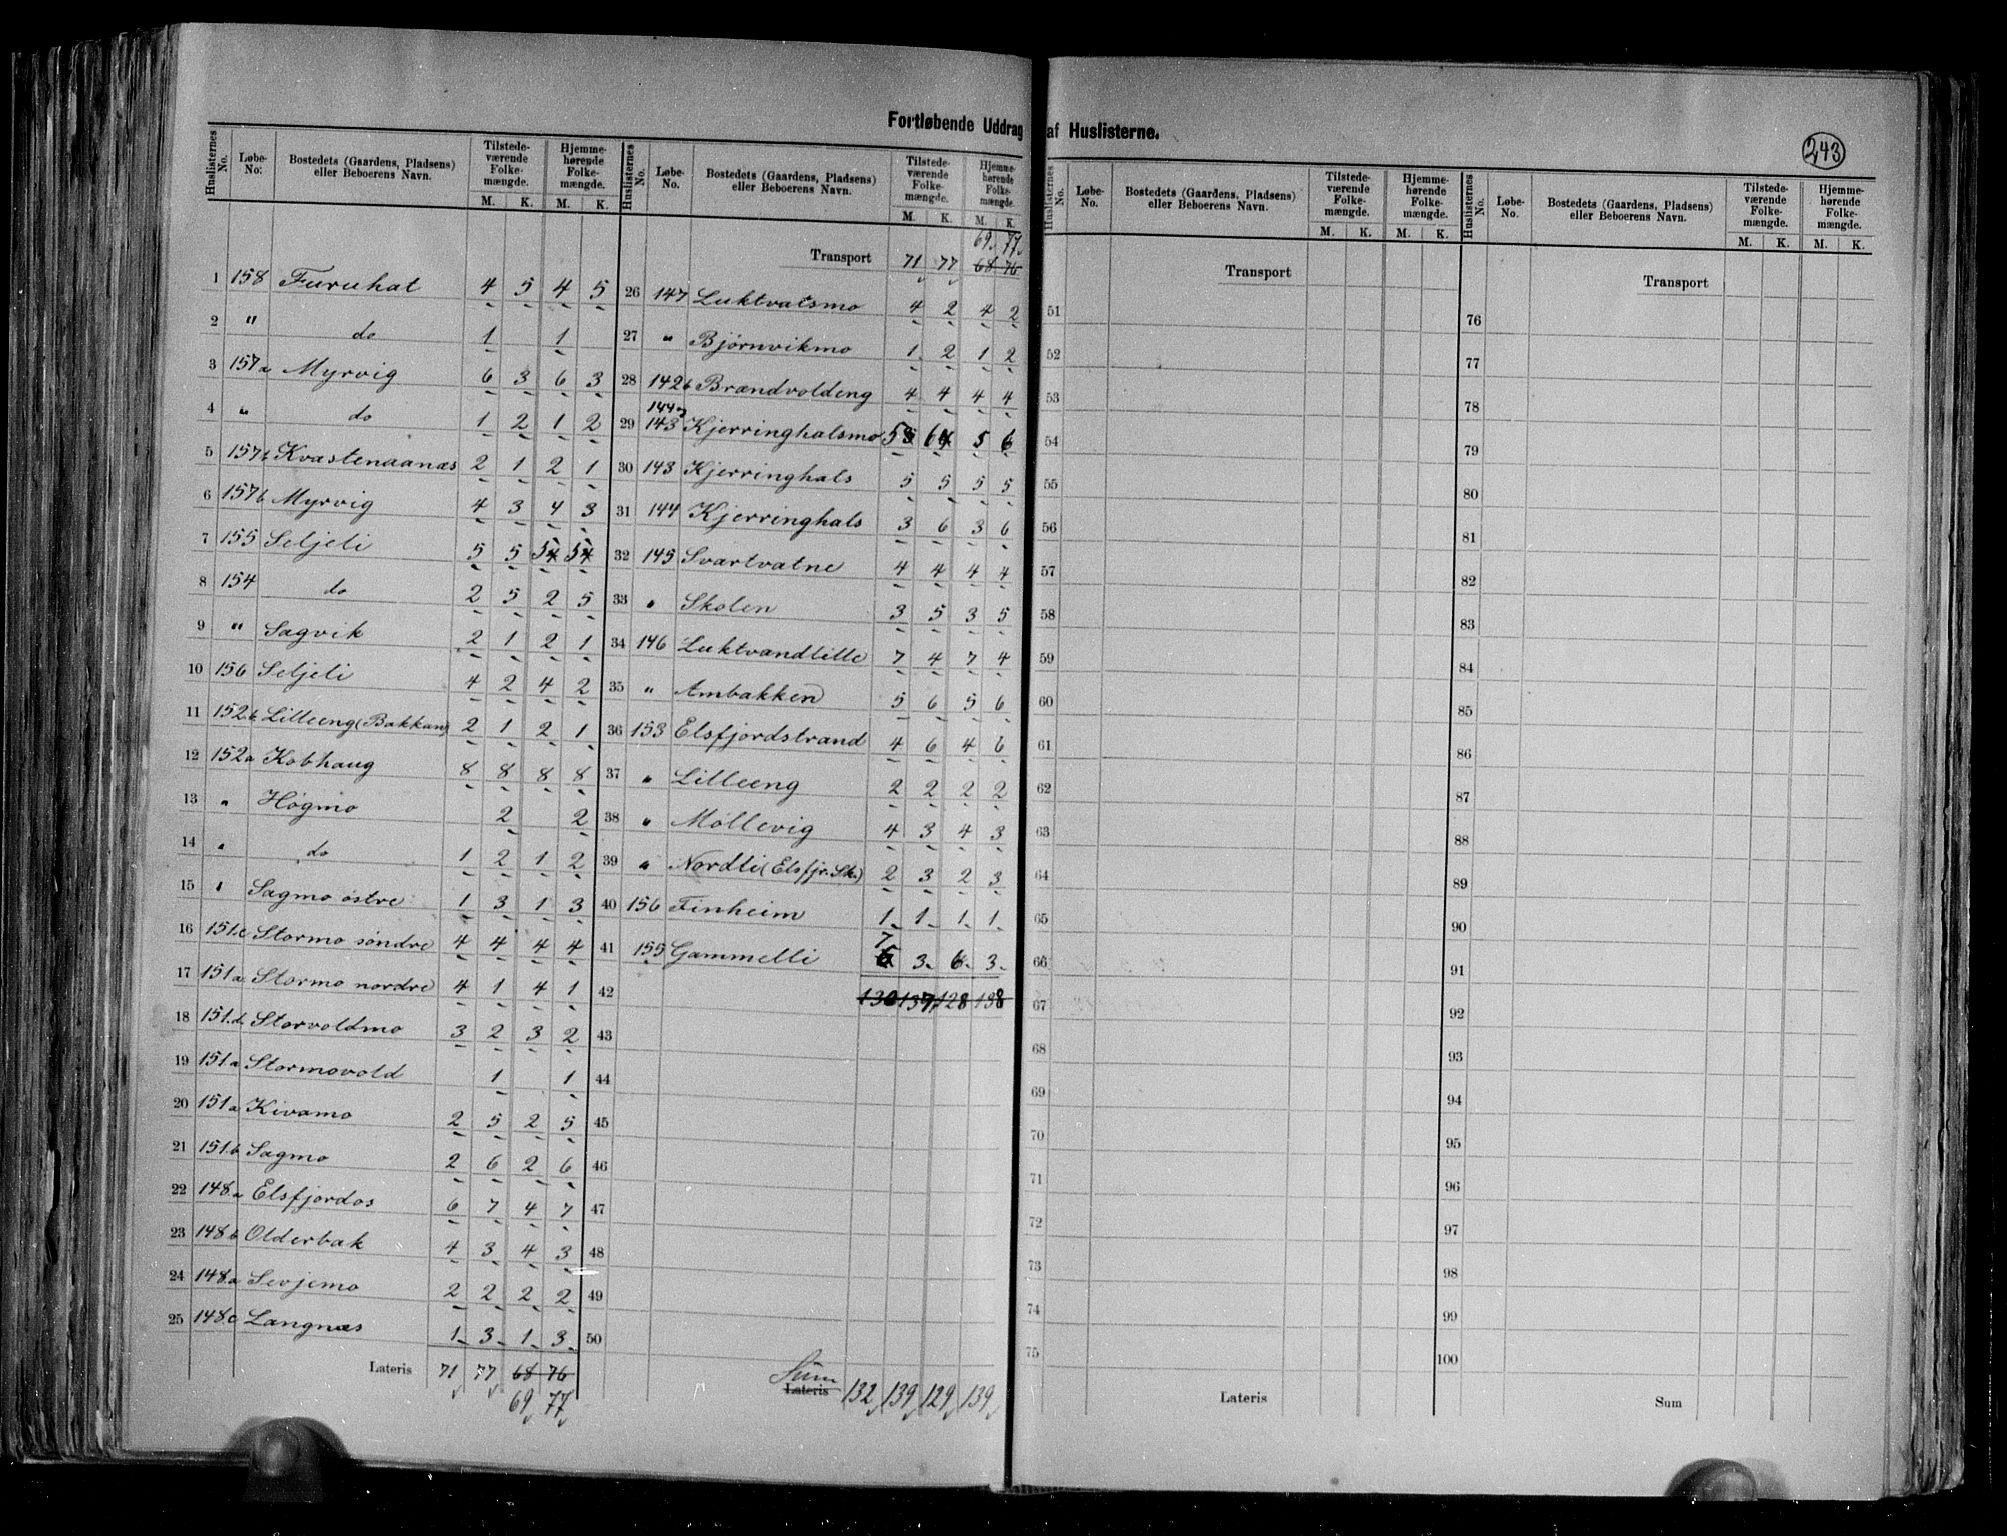 Fortløbende Uddrag af Huslisterne.
243
Huslisternes No.
Løbe-No.
Bostedets (Gaardens, Pladsens) eller Beboerens Navn.
Tilstede-værende Folke-mængde.
Hjemme-hørende Folke-mængde.
M. K. M. K.
1 158 Furuhat 4 5 4 5
2 " do 1 1
3 157a Myrvig 6 3 6 3
4 " do 1 2 1 2
5 157b Kvastenaanæs 2 1 2 1
6 157b Myrvig 4 3 4 3
7 155 Seljeli 5 5 5 4 5 4
8 154 do 2 5 2 5
9 " Sagvik 2 1 2 1
10 156 Seljeli 4 2 4 2
11 152b Lilleeng (Bakkan) 2 1 2 1
12 152a Kobhaug 8 8 8 8
13 " Høgmo 2 2
14 " do 1 2 1 2
15 " Sagmo østre 1 3 1 3
16 151.c Stormo søndre 4 4 4 4
17 151a Stormo nordre 4 1 4 1
18 151.d Storvoldmo 3 2 3 2
19 151.a Stormovold 1 1
20 151a Kivamo 2 5 2 5
21 151.b Sagmo 2 6 2 6
22 148.a Elsfjordos 6 7 4 7
23 148.b Olderbak 4 3 4 3
24 148.a Sevjemo 2 2 2 2
25 148c Langnæs 1 3 1 3
Lateris 71 77 68 76
69 77
Huslisternes No.
Løbe-No.
Bostedets (Gaardens, Pladsens) eller Beboerens Navn.
Tilstede-værende Folke-mængde.
Hjemme-hørende Folke-mængde.
M. K. M. K.
69 77
Transport 71 77 68 76
26 147 Luktvatsmo 4 2 4 2
27 " Bjørnvikmo 1 2 1 2
28 142b Brændvoldeng 4 4 4 4
144,
29 143 Kjerringhalsmo 5 6 5 6
30 143 Kjerringhals 5 5 5 5
31 144 Kjerringhals 3 6 3 6
32 145 Svartvatne 4 4 4 4
33 " Skolen 3 5 3 5
34 146 Luktvandlille 7 4 7 4
35 " Ambakken 5 6 5 6
36 153 Elsfjordstrand 4 6 4 6
37 " Lilleeng 2 2 2 2
38 " Mollevig 4 3 4 3
39 " Nordli (Elsfjr. Sk.) 2 3 2 3
40 156 Finheim 1 1 1 1
7
41 155 Gammelli 6 3 6 3
42 130 137 128 138
43
44
45
46
47
48
49
50
Sum
Lateris 132 139 129 139
Huslisternes No.
Løbe-No.
Bostedets (Gaardens, Pladsens) eller Beboerens Navn.
Tilstede-værende Folke-mængde.
Hjemme-hørende Folke-mængde.
M. K. M. K.
Transport
51
52
53
54
55
56
57
58
59
60
61
62
63
64
65
66
67
68
69
70
71
72
73
74
75
Lateris
Huslisternes No.
Løbe-No.
Bostedets (Gaardens, Pladsens) eller Beboerens Navn.
Tilstede-værende Folke-mængde.
Hjemme-hørende Folke-mængde.
M. K. M. K.
Transport
76
77
78
79
80
81
82
83
84
85
86
87
88
89
90
91
92
93
94
95
96
97
98
99
100
Sum